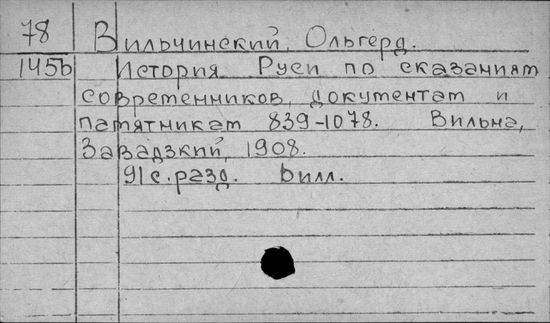 78 Вильчинский, Ольгерд.
1456 История Руси по сказаниям
современников, документам и
памятникам 839-1078. Вильна,
Завадзкий, 1908.
91 с. разд. 6 илл.